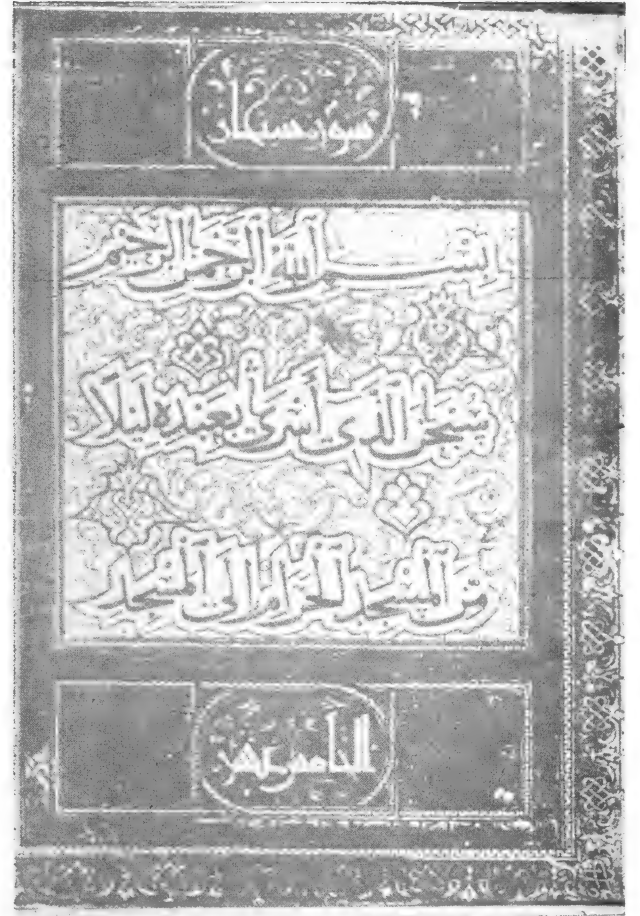 سورة سبحان
بِسْمِ اللَّهِ الرَّحْمَٰنِ الرَّحِيمِ
سُبْحَٰنَ الَّذِي أَسْرَىٰ بِعَبْدِهِ لَيْلًا
مِّنَ الْمَسْجِدِ الْحَرَامِ إِلَى الْمَسْجِدِ
الخامس عشر